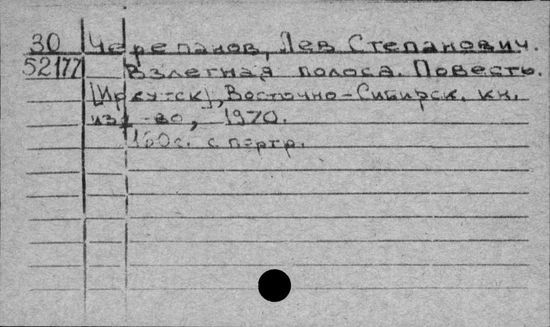 30 Черепанов, Лев Степанович.
52177 Взлетная полоса. Повесть.
[Иркутск], Восточно-Сибирск. кн.
изд-во, 1970.
160с. с портр.